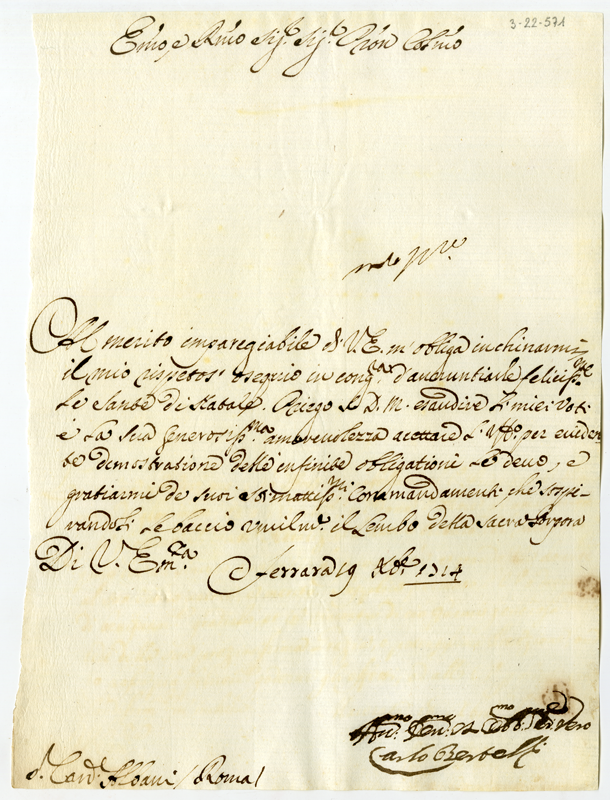 3-22-571
Emo, e Rmo Sigr. Sigr. Pron Colmo
Al merito impareggiabile di V. E. m'obliga inchinarmi
il mio rispetos. osequio in congra. d'anuntiarle felicissme
le Sante di Natale. Priego S. D. M. esaudire i miei Voti
e la sua generosissma amorevolezza accettare l'uffo. per eviden
te demostratione delle infinite obligationi le devo, e
gratiarmi de suoi stimatissmi Comandamenti che sospi-
randoli le baccio umilmte. il Lembo della Sacra Porpora
Di V. Emza.
Ferrara 19 Xbre. 1714
Carlo Bertelli
Sr. Card. Albani / Roma /